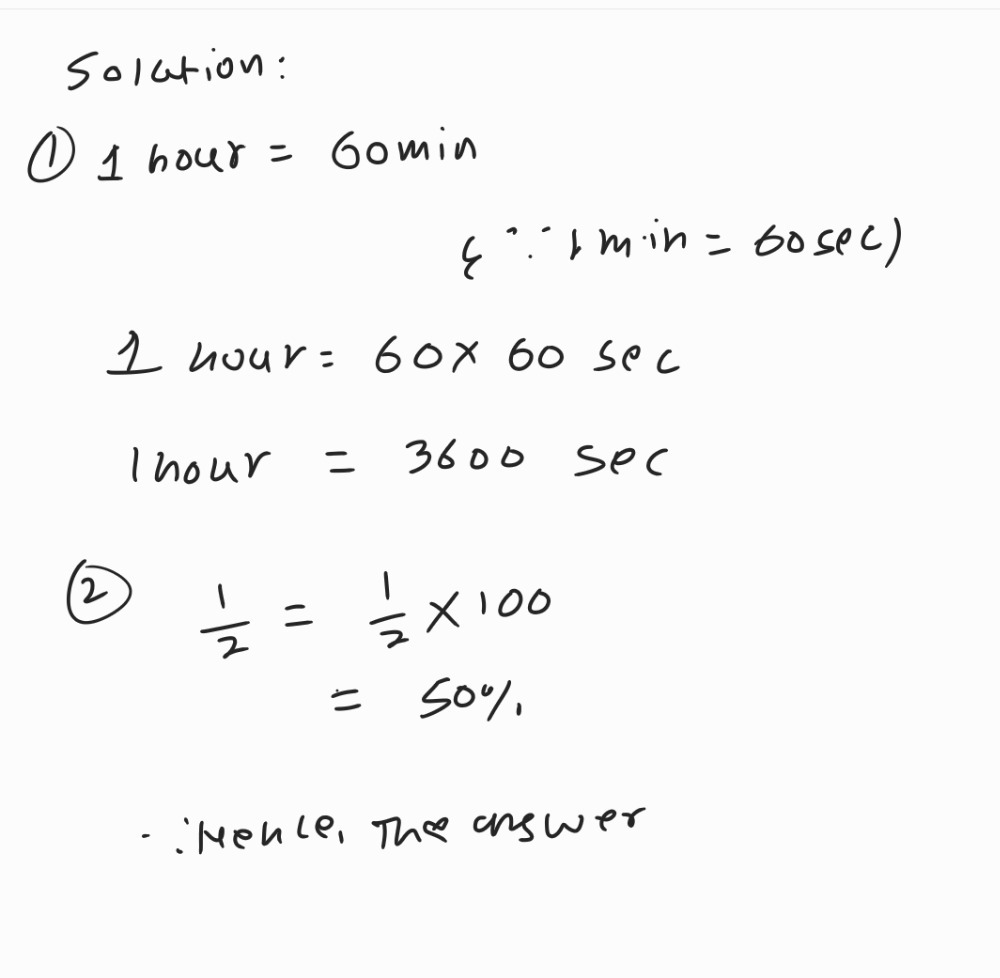 Solution:
① 1 hour = 60min
{ ∵ 1 min = 60sec)
1 hour = 60 × 60 sec
1 hour = 3600 sec
② 1/2 = 1/2 × 100
= 50%
∴ Hence, The answer